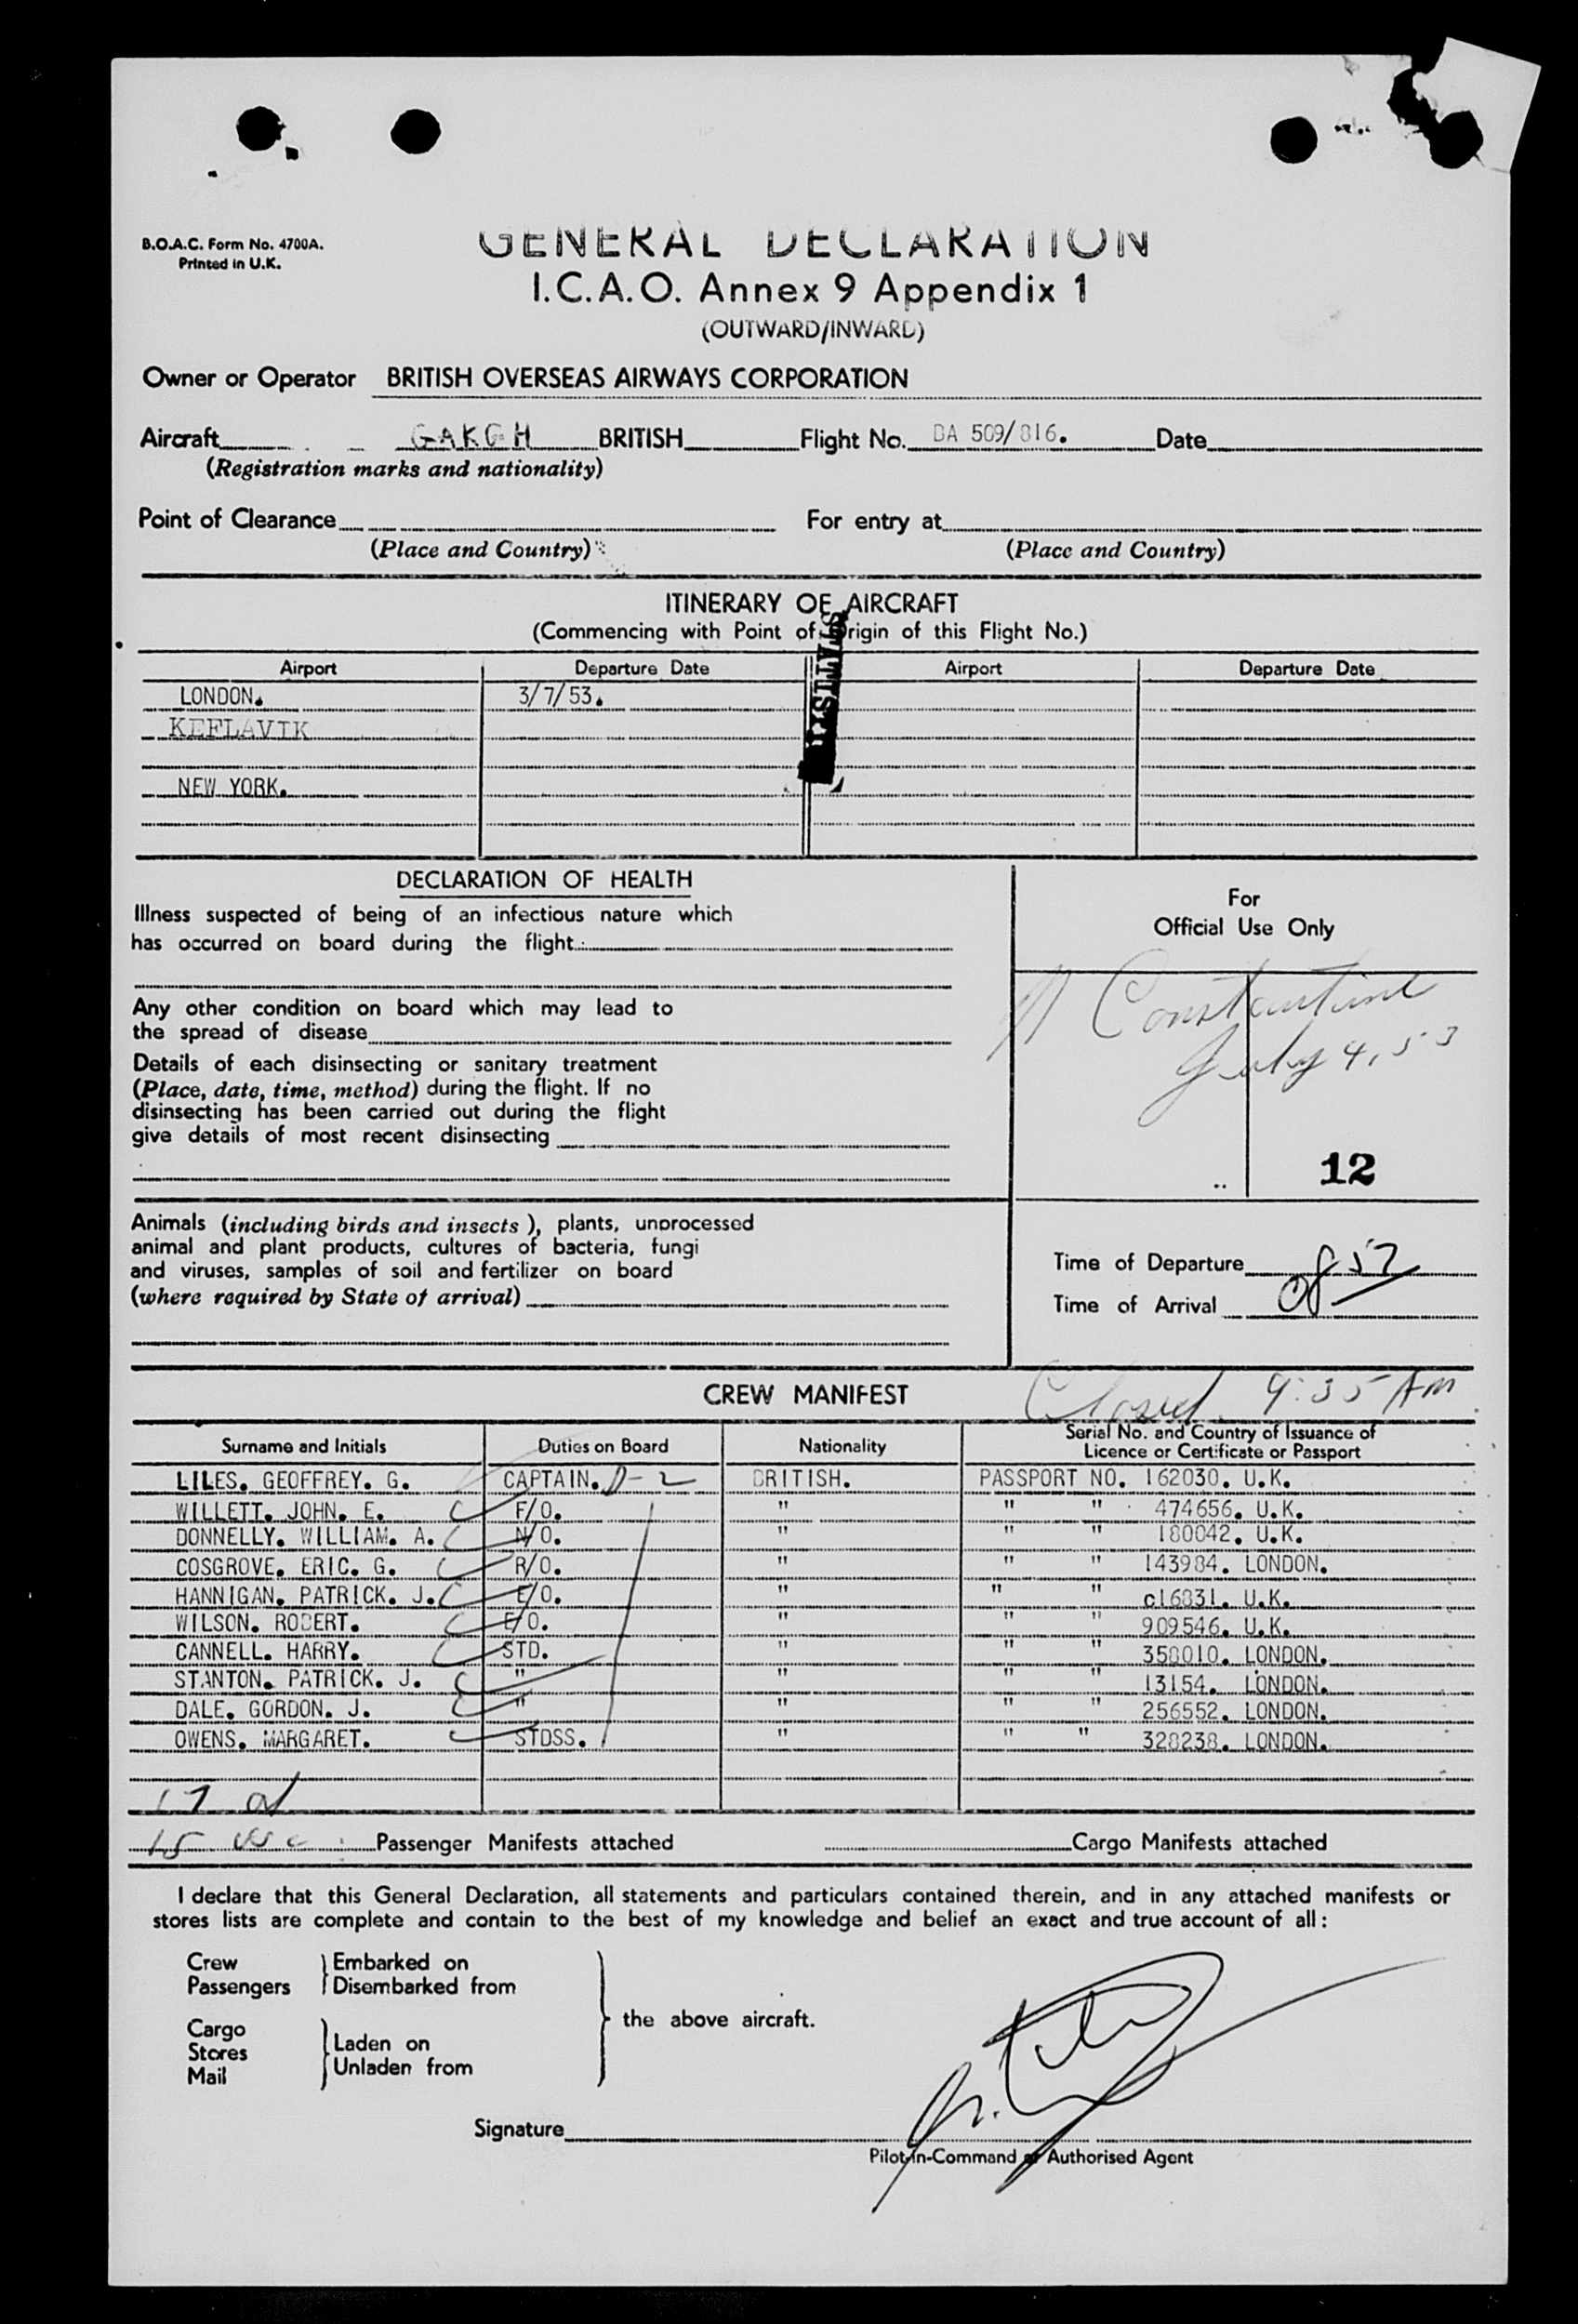 B.O.A.C. Form No. 4700A.
Printed in U.K.
GENERAL DECLARATION
I.C.A.O. Annex 9 Appendix 1
(OUTWARD/INWARD)
Owner or Operator BRITISH OVERSEAS AIRWAYS CORPORATION
Aircraft GAKGH BRITISH Flight No. BA 509/816. Date
(Registration marks and nationality)
Point of Clearance For entry at
(Place and Country) (Place and Country)
ITINERARY OF AIRCRAFT
(Commencing with Point of Origin of this Flight No.)
Airport Departure Date Airport Departure Date
LONDON. 3/7/53.
KEFLAVIK
NEW YORK.
DECLARATION OF HEALTH
Illness suspected of being of an infectious nature which
has occurred on board during the flight
Any other condition on board which may lead to
the spread of disease
Details of each disinsecting or sanitary treatment
(Place, date, time, method) during the flight. If no
disinsecting has been carried out during the flight
give details of most recent disinsecting
For
Official Use Only
Constantine
July 4, 53
12
Animals (including birds and insects), plants, unprocessed
animal and plant products, cultures of bacteria, fungi
and viruses, samples of soil and fertilizer on board
(where required by State of arrival)
Time of Departure
Time of Arrival 0857
CREW MANIFEST Closed 9:35 AM
Surname and Initials Duties on Board Nationality Serial No. and Country of Issuance of
Licence or Certificate or Passport
LILES. GEOFFREY. G. CAPTAIN. D-2 BRITISH. PASSPORT NO. 162030. U.K.
WILLETT. JOHN. E. F/O. " " " 474656. U.K.
DONNELLY. WILLIAM. A. N/O. " " " 180042. U.K.
COSGROVE. ERIC. G. R/O. " " " 143984. LONDON.
HANNIGAN. PATRICK. J. E/O. " " " c16831. U.K.
WILSON. ROBERT. E/O. " " " 909546. U.K.
CANNELL. HARRY. STD. " " " 358010. LONDON.
STANTON. PATRICK. J. " " " " 13154. LONDON.
DALE. GORDON. J. " " " " 256552. LONDON.
OWENS. MARGARET. STDSS. " " " 328238. LONDON.
17 al
15 usc Passenger Manifests attached Cargo Manifests attached
I declare that this General Declaration, all statements and particulars contained therein, and in any attached manifests or
stores lists are complete and contain to the best of my knowledge and belief an exact and true account of all:
Crew Embarked on
Passengers Disembarked from
the above aircraft.
Cargo
Stores Laden on
Mail Unladen from
Signature
Pilot-in-Command or Authorised Agent